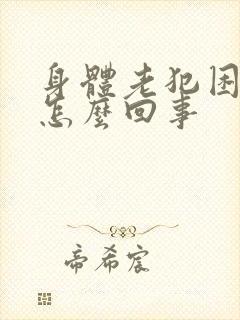 身體老犯困
怎麼回事
帝希宸